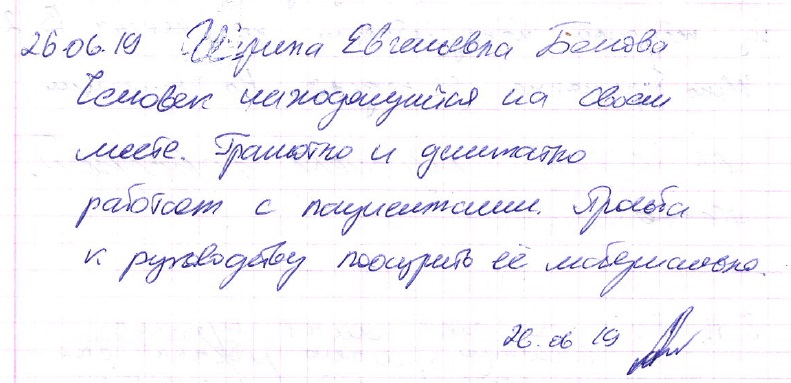 26.06.19 Ирина Евгеньевна Бокова
Человек находящийся на своём
месте. Грамотно и деликатно
работает с пациентами. Просьба
к руководству поощрить её материально.
26.06 19